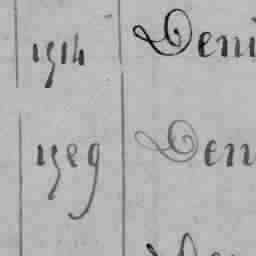 1514 Deni
1589 Den